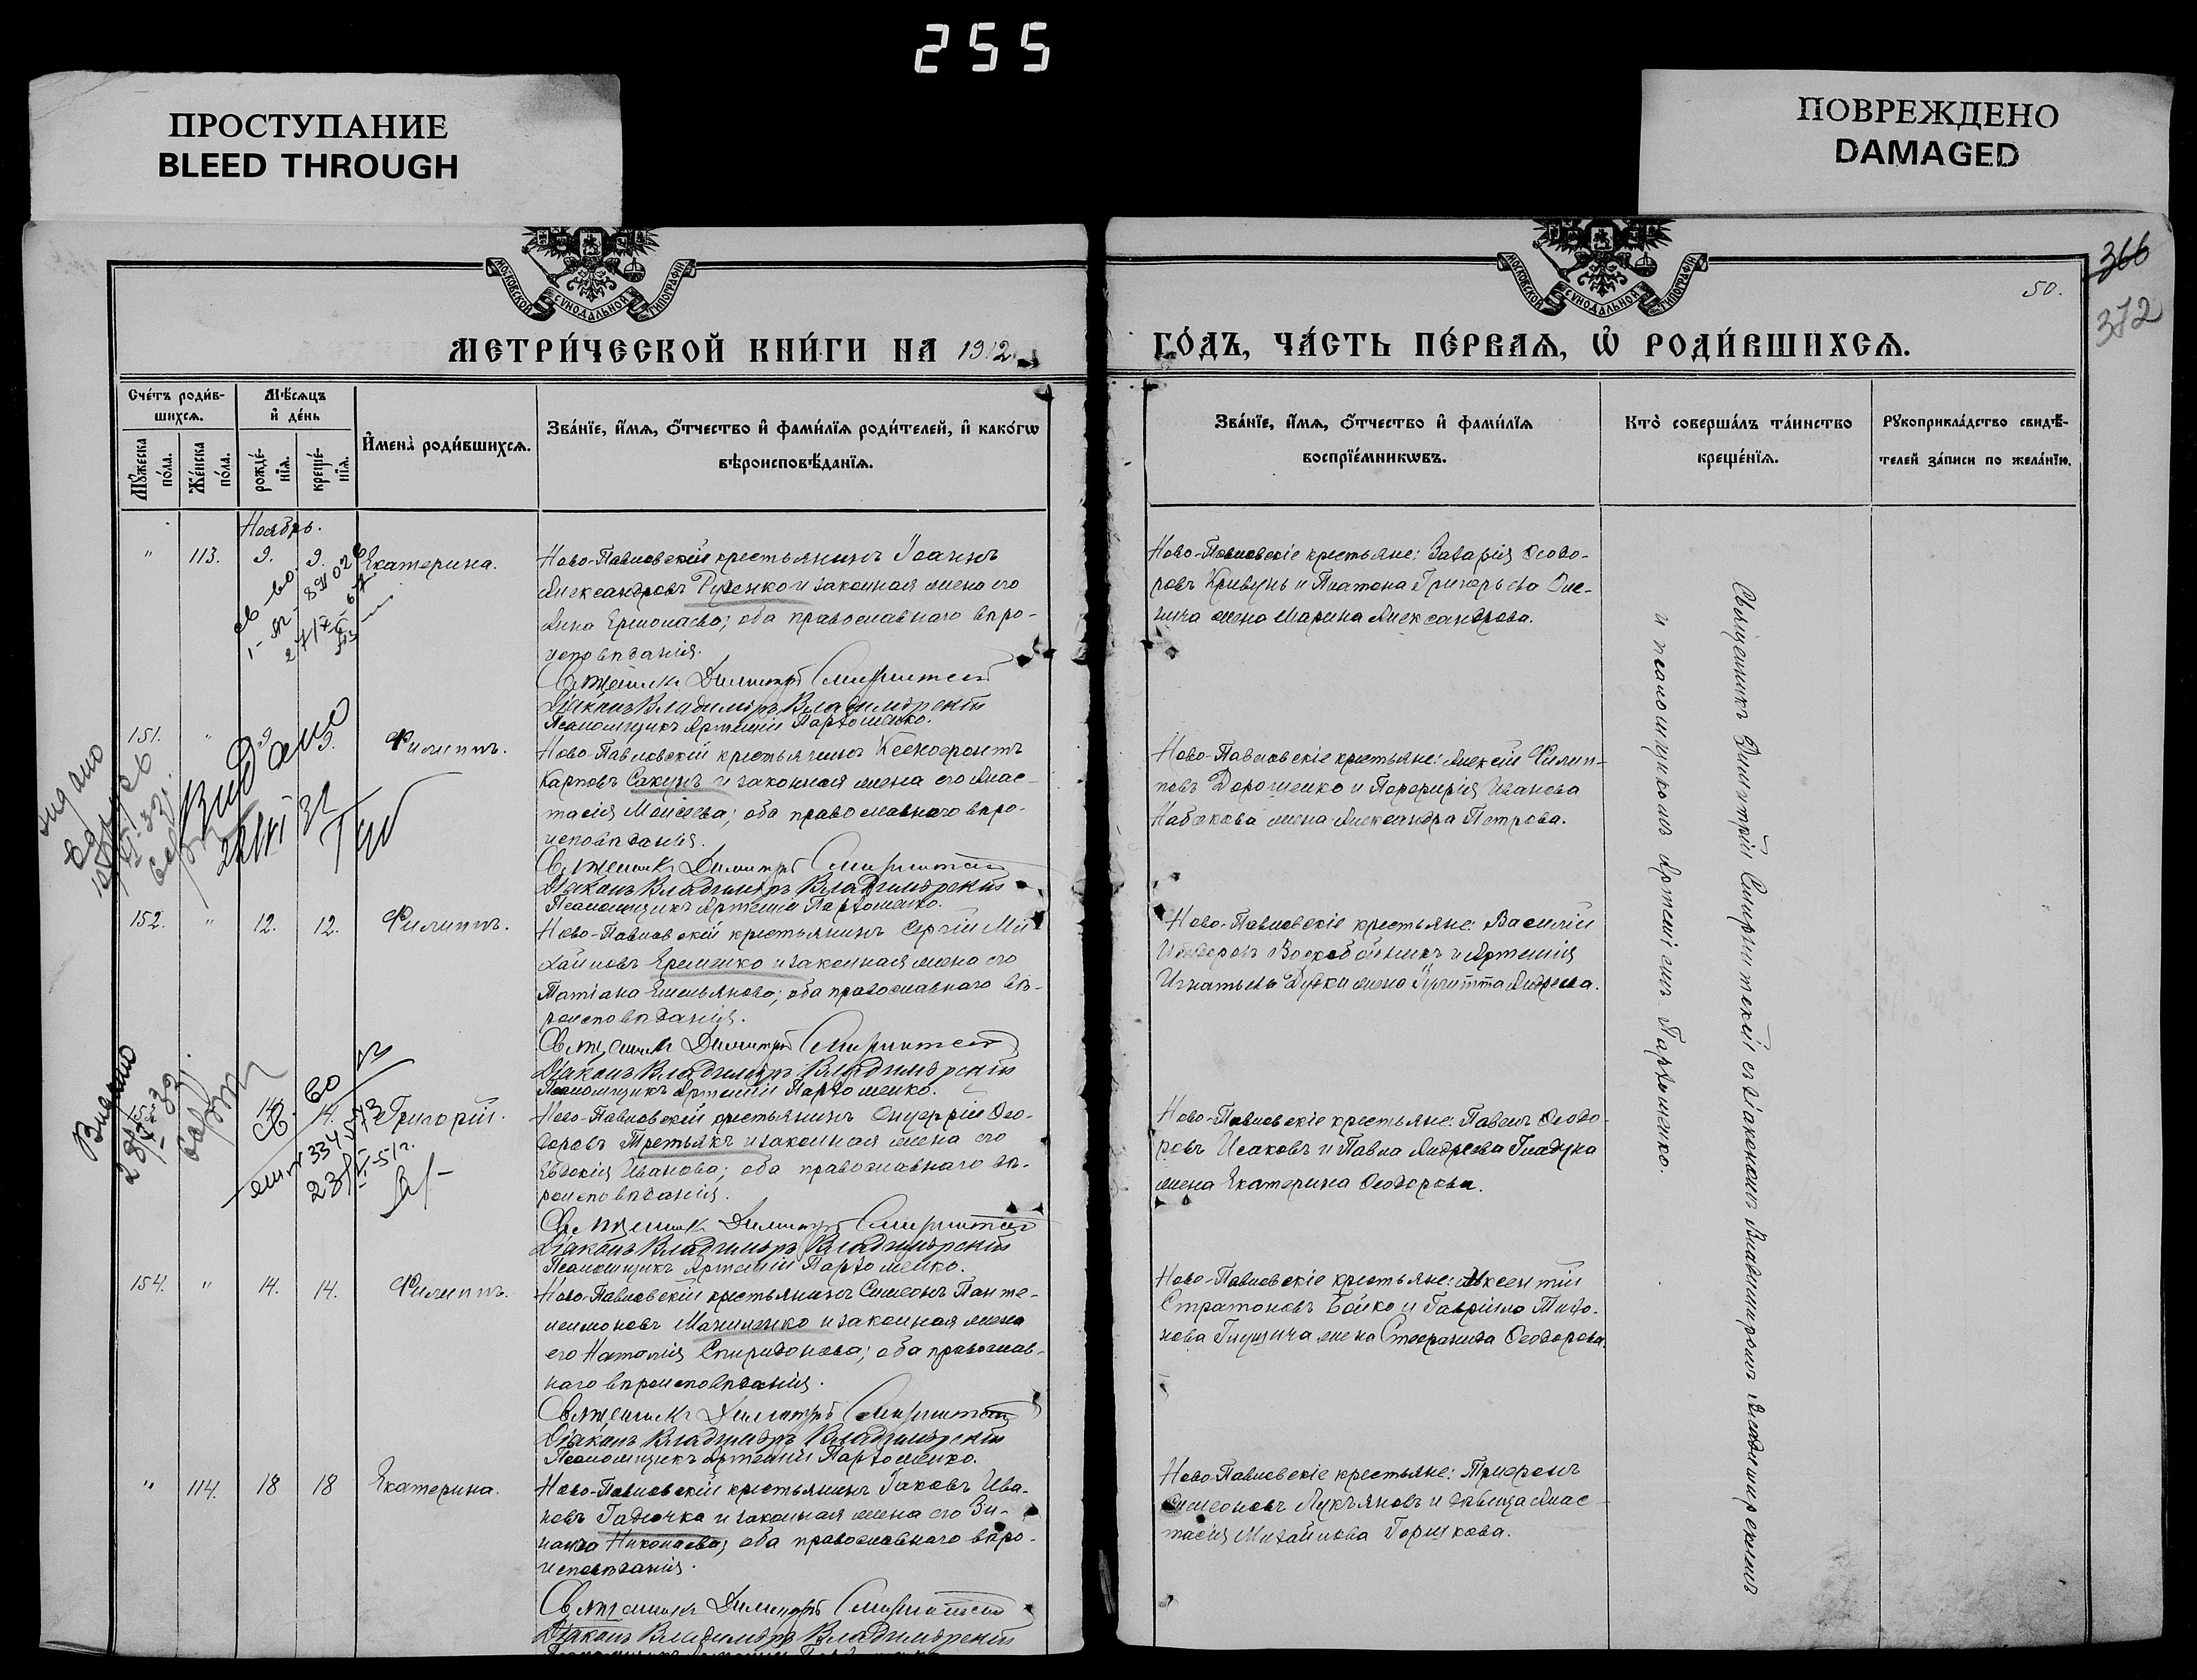 255
ПРОСТУПАНИЕ
BLEED THROUGH
ПОВРЕЖДЕНО
DAMAGED
МОСКОВСКОЙ СѴНОДАЛЬНОЙ ТИПОГРАФІИ
МОСКОВСКОЙ СѴНОДАЛЬНОЙ ТИПОГРАФІИ
366
50.
372
МЕТРИ́ЧЕСКОЙ КНИ́ГИ НА 1912
ГО́ДЪ, ЧА́СТЬ ПЕ́РВАѦ, Ѡ҆ РОДИ́ВШИХСѦ.
Сче́тъ роди́в-
шихсѧ.
Мꙋ́жеска
по́ла.
Же́нска
по́ла.
Мѣ́сѧцъ
и҆ де́нь
рожде́-
нїѧ.
креще́-
нїѧ.
И҆мена̀ роди́вшихсѧ.
Зва́нїе, и҆́мѧ, ѻ҆́тчество и҆ фами́лїѧ роди́телей, и҆ како́гѡ
вѣроисповѣ́данїѧ.
Зва́нїе, и҆́мѧ, ѻ҆́тчество и҆ фами́лїѧ
воспрїе́мникѡвъ.
Кто̀ соверша́лъ та́инство
креще́нїѧ.
Рꙋкоприкла́дство свидѣ́-
телей за́писи по жела́нїю.
Ноябрь.
" 113. 9. 9. Екатерина.
Ново-Павловскій крестьянинъ Іоаннъ
Александровъ Руденко и законная жена его
Анна Ермолаева; оба православнаго вѣро-
исповѣданія.
Священникъ Димитрій Смиритскій
Діаконъ Владиміръ Владимірскій
Псаломщикъ Артемій Пархоменко.
Ново-Павловскіе крестьяне: Захарія Ѳеодо-
ровъ Кривунь и Платона Григорьева
жена Марина Александрова.
151. " 9. 9. Филиппъ.
Ново-Павловскій крестьянинъ Ксенофонтъ
Карповъ Сакунъ и законная жена его Анас-
тасія Моисеева; оба православнаго вѣро-
исповѣданія.
Священникъ Димитрій Смиритскій
Діаконъ Владиміръ Владимірскій
Псаломщикъ Артемій Пархоменко.
Ново-Павловскіе крестьяне: Алексій Филип-
повъ Дорошенко и Порфирія Иванова
Набокова жена Александра Петрова.
Видано
152. " 12. 12. Филиппъ.
Ново-Павловскій крестьянинъ Сергій Ми-
хайловъ Еременко и законная жена его
Татіана Емельянова; оба православнаго вѣ-
роисповѣданія.
Священникъ Димитрій Смиритскій
Діаконъ Владиміръ Владимірскій
Псаломщикъ Артемій Пархоменко.
Ново-Павловскіе крестьяне: Василій
Воскобойникъ и Артемія
Игнатьева жена Андреева.
14. 14. Григорій.
Ново-Павловскій крестьянинъ Онуфрій Ѳео-
доровъ Третьякъ и законная жена его
Евдокія Иванова; оба православнаго вѣ-
роисповѣданія.
Священникъ Димитрій Смиритскій
Діаконъ Владиміръ Владимірскій
Псаломщикъ Артемій Пархоменко.
Ново-Павловскіе крестьяне: Павелъ Ѳеодо-
ровъ Исаковъ и Павла Андреева Гладуна
жена Екатерина Ѳеодорова.
154. " 14. 14. Филиппъ.
Ново-Павловскій крестьянинъ Симеонъ Панте-
леимоновъ Маниленко и законная жена
его Наталія Спиридонова; оба православ-
наго вѣроисповѣданія.
Священникъ Димитрій Смиритскій
Діаконъ Владиміръ Владимірскій
Псаломщикъ Артемій Пархоменко.
Ново-Павловскіе крестьяне: Авксентій
Стратоновъ Бойко и Гавріила Тихо-
нова жена Стефанида Ѳеодорова.
" 114. 18 18 Екатерина.
Ново-Павловскій крестьянинъ Іаковъ Ива-
новъ Гадючка и законная жена его Зи-
наида Николаева; оба православнаго вѣро-
исповѣданія.
Священникъ Димитрій Смиритскій
Діаконъ Владиміръ Владимірскій
Ново-Павловскіе крестьяне: Трифонъ
Симеоновъ Лукьяновъ и дѣвица Анас-
тасія Михайлова Горшкова.
Священникъ Димитрій Смиритскій съ діакономъ Владиміромъ Владимірскимъ
и псаломщикомъ Артеміемъ Пархоменко.